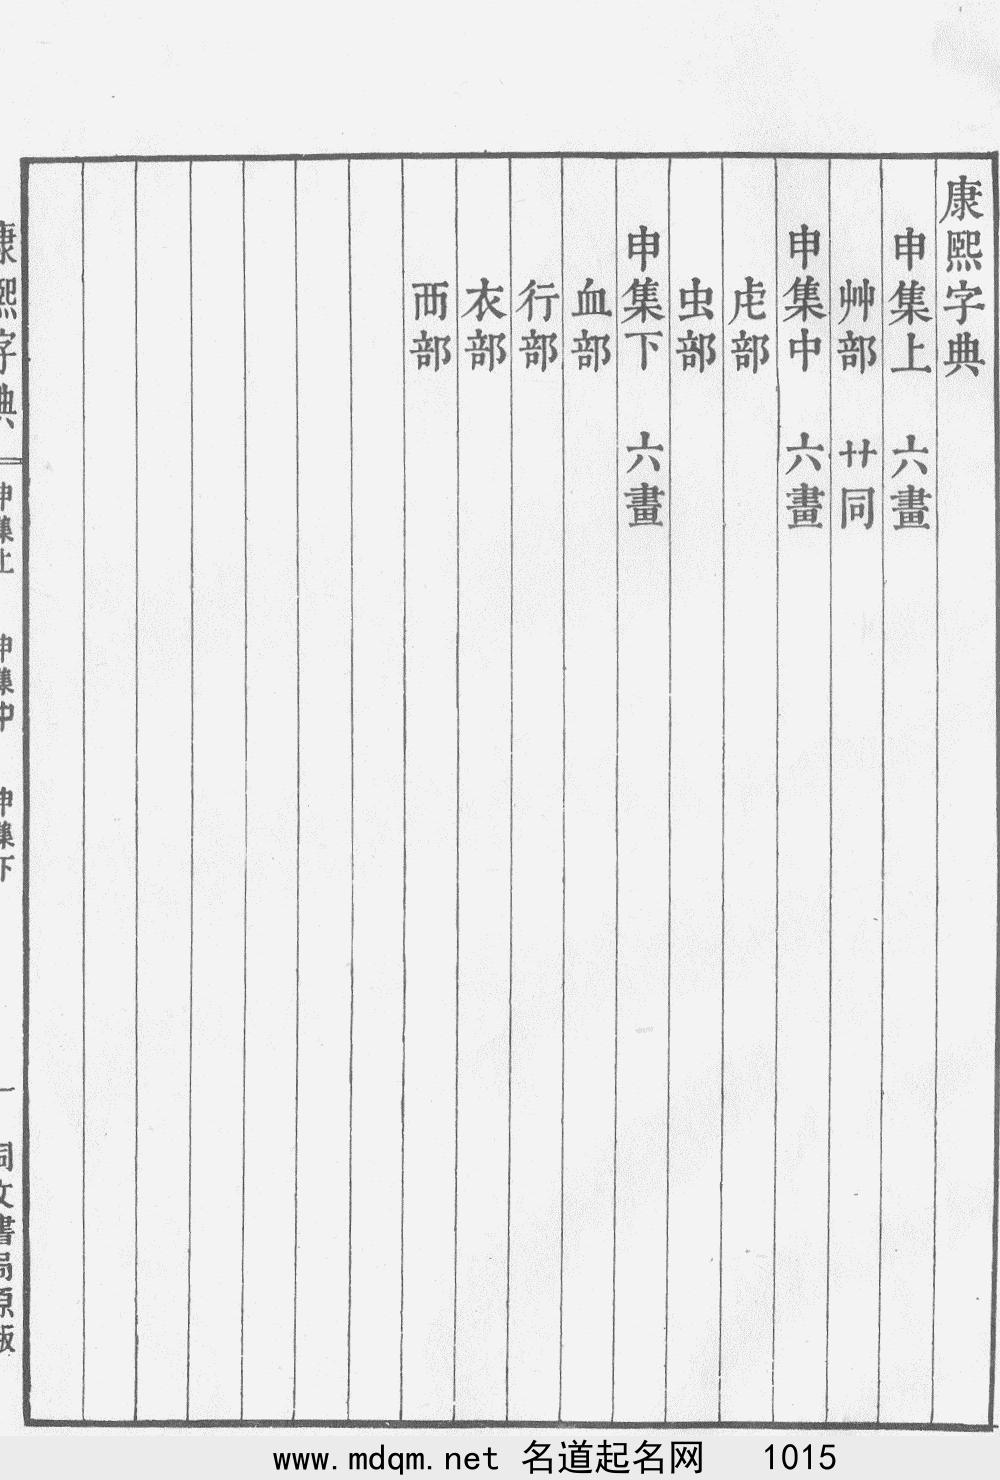 康熙字典
申集上 六畫
艸部 艹同
申集中 六畫
虍部
虫部
申集下 六畫
血部
行部
衣部
襾部
康熙字典 申集上 申集中 申集下 一 同文書局原版
www.mdqm.net 名道起名网 1015